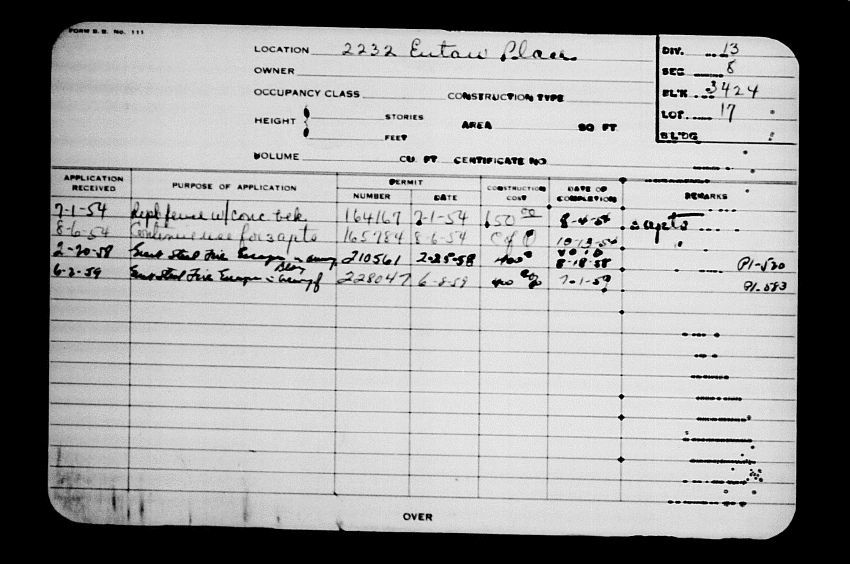 FORM B.B. No. 111
LOCATION 2232 Eutaw Place
DIV. 13
OWNER
SEC 8
OCCUPANCY CLASS CONSTRUCTION TYPE
BL'K 3424
HEIGHT STORIES
AREA SQ FT.
LOT 17
FEET
BLDG
VOLUME CU. FT. CERTIFICATE NO
APPLICATION RECEIVED PURPOSE OF APPLICATION PERMIT NUMBER DATE CONSTRUCTION COST DATE OF COMPLETION REMARKS
7-1-54 Repl fence w/conc bek 164167 7-1-54 150 00 8-4-54 3 apts
8-6-54 Continue use for 3 apts 165784 8-6-54 C of O 10-12-54
VOID
2-20-58 Erect Steel Fire Escape 210561 2-25-58 400 8-18-58 P1-530
6-2-59 Erect Steel Fire Escape 228047 6-8-59 400 7-1-59 P1-583
OVER